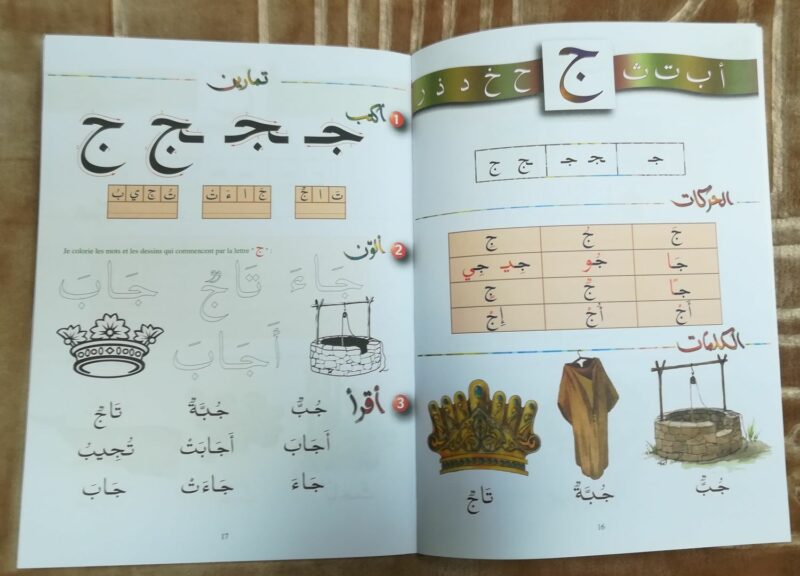 أ ب ت ث ج ح خ د ذ ر
جـ ـجـ جـ ـج ج
الحركات
جَ جُ جِ
جَا جُو جِيـ جِي
جًا جٌ جٍ
أَجْ أُجْ إِجْ
الكلمات
جُبٌّ جُبَّةٌ تَاجٌ
16
تمارين
1 أكتب
جـ ـجـ ـج ج
تَ ا جٌ جَ ا ءَ تْ تُ جِ ي بُ
2 ألوّن
Je colorie les mots et les dessins qui commencent par la lettre "ج" :
جَاءَ تَاجٌ جَابَ
أَجَابَ
3 أقرأ
جُبٌّ جُبَّةٌ تَاجٌ
أَجَابَ أَجَابَتْ تُجِيبُ
جَاءَ جَاءَتْ جَابَ
17